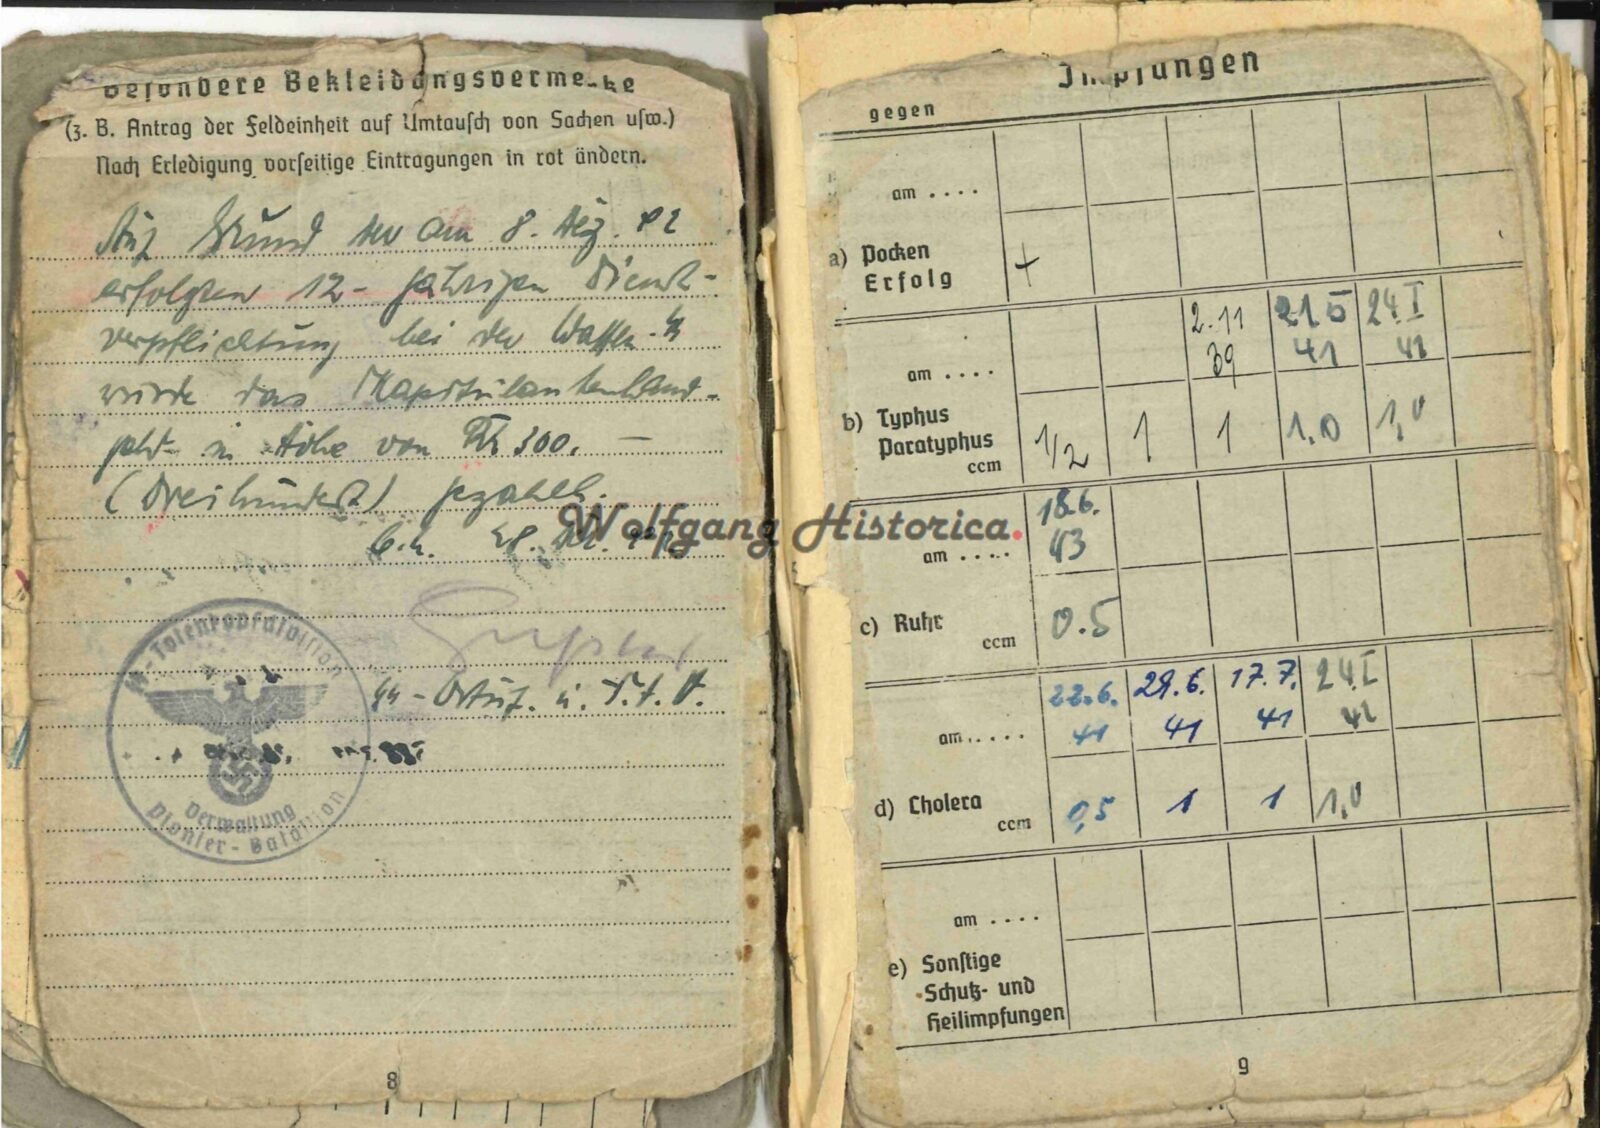 Besondere Bekleidungsvermerke
(z. B. Antrag der Feldeinheit auf Umtausch von Sachen usw.)
Nach Erledigung vorseitige Eintragungen in rot ändern.
Auf Grund der am 8. Dez. 42
erfolgten 12-jährigen Dienst-
verpflichtung bei der Waffen-SS
wurde das Kapitulantenhand-
geld in Höhe von RM 300.—
(Dreihundert) gezahlt.
SS-Totenkopfdivision
SS-Ostuf. u.
Verwaltung
Pionier-Bataillon
8
Impfungen
gegen
am ....
a) Pocken
Erfolg +
2.11 21.5 24.I
am .... 39 41 42
b) Typhus
Paratyphus
ccm 1/2 1 1 1,0 1,0
18.6.
am .... 43
c) Ruhr
ccm 0.5
22.6. 29.6. 17.7. 24.I
am .... 41 41 41 42
d) Cholera
ccm 0,5 1 1 1,0
am ....
e) Sonstige
Schutz- und
Heilimpfungen
9
Wolfgang Historica.